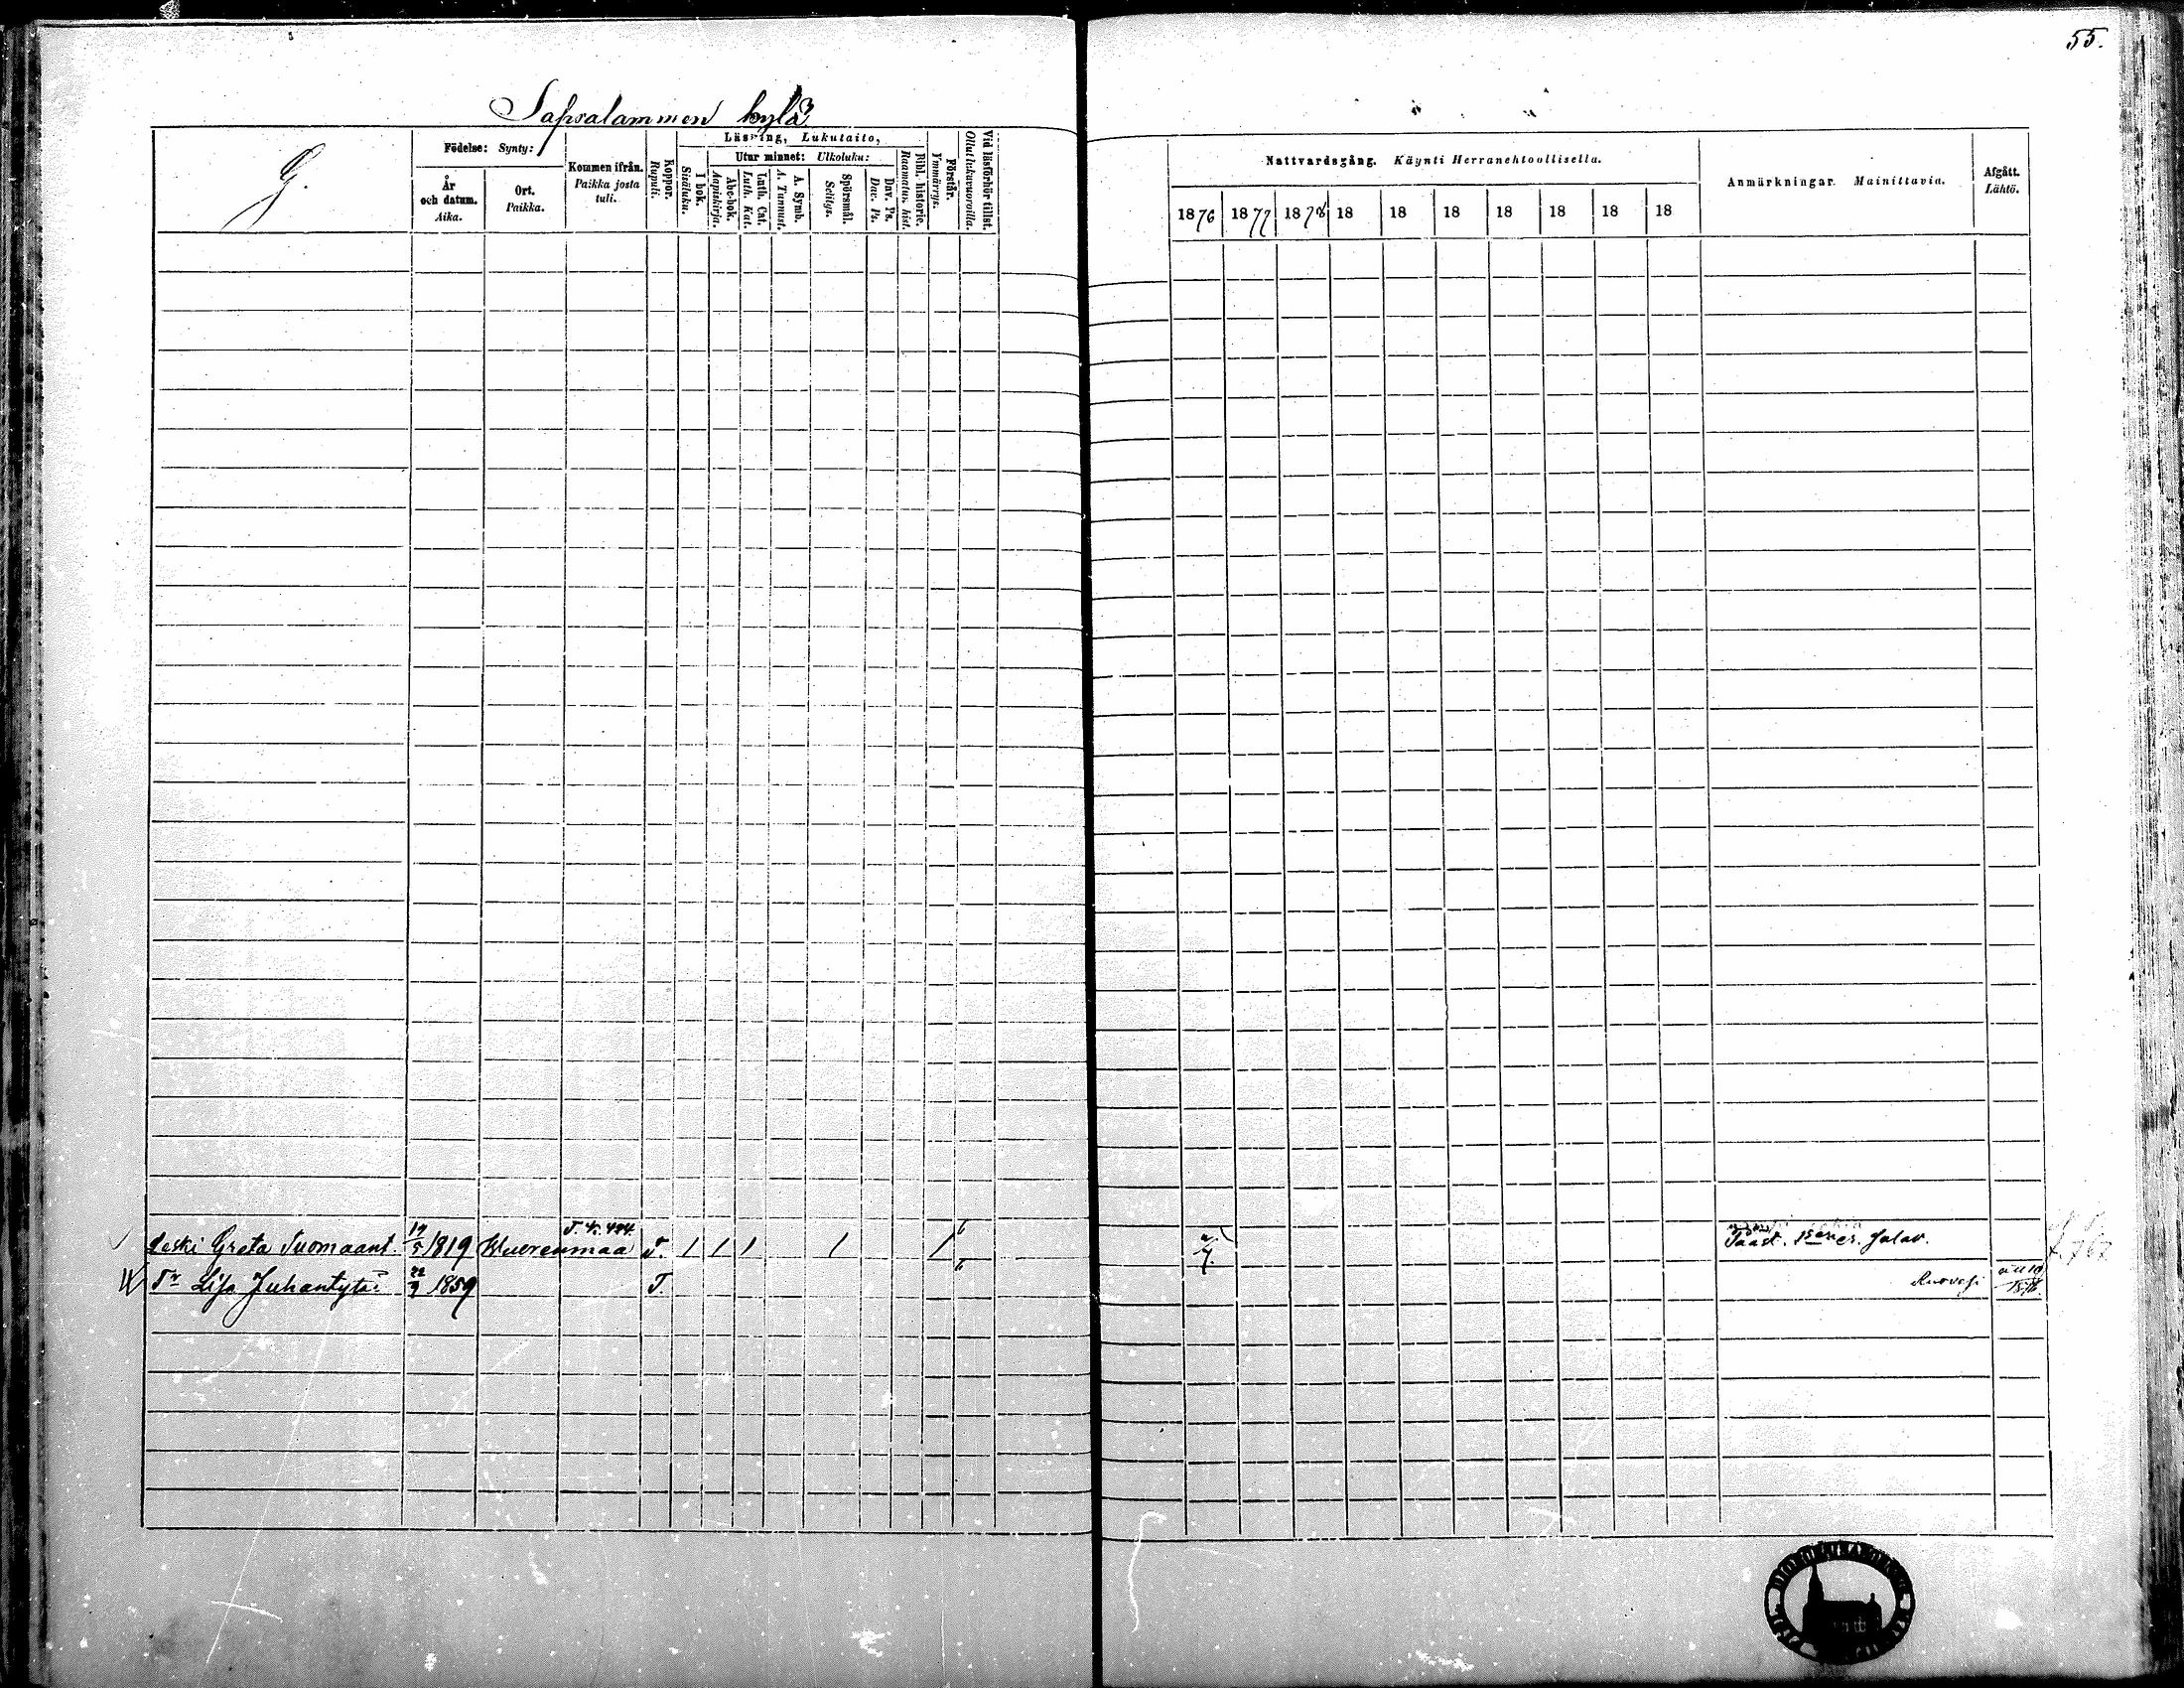 55.
Sapsalammen kylä
G.
Födelse: Synty:
År och datum. Aika.
Ort. Paikka.
Kommen ifrån. Paikka josta tuli.
Koppor. Rupuli.
Läsning, Lukutaito,
I bok. Sisäluku.
Utur minnet: Ulkoluku:
Abc-bok. Aapiskirja.
Luth. Cat. Luth. Kat.
A. Symb. A. Tunnust.
Spörsmål. Selitys.
Dav. Ps. Dav. Ps.
Bibl. historie. Raamatun. hist.
Förstår. Ymmärrys.
Vid läsförhör tillst. Ollut lukuvuoroilla.
Nattvardsgång. Käynti Herranehtoollisella.
1876 1877 1878 18 18 18 18 18 18 18
Anmärkningar. Mainittavia.
Afgått. Lähtö.
Leski Greta Tuomaant. 5 1819 Wuorenmaa T. / / / / /
Tr Lisa Juhantytär 1859 T. Ruovesi